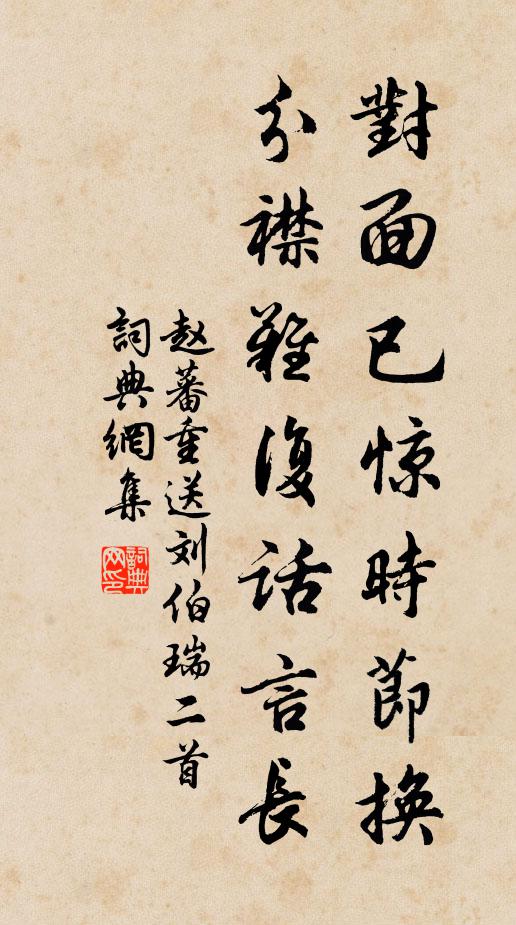 對面已惊時節換
分襟難復話言長
赵蕃重送刘伯瑞二首
詞典網集
詞典网印